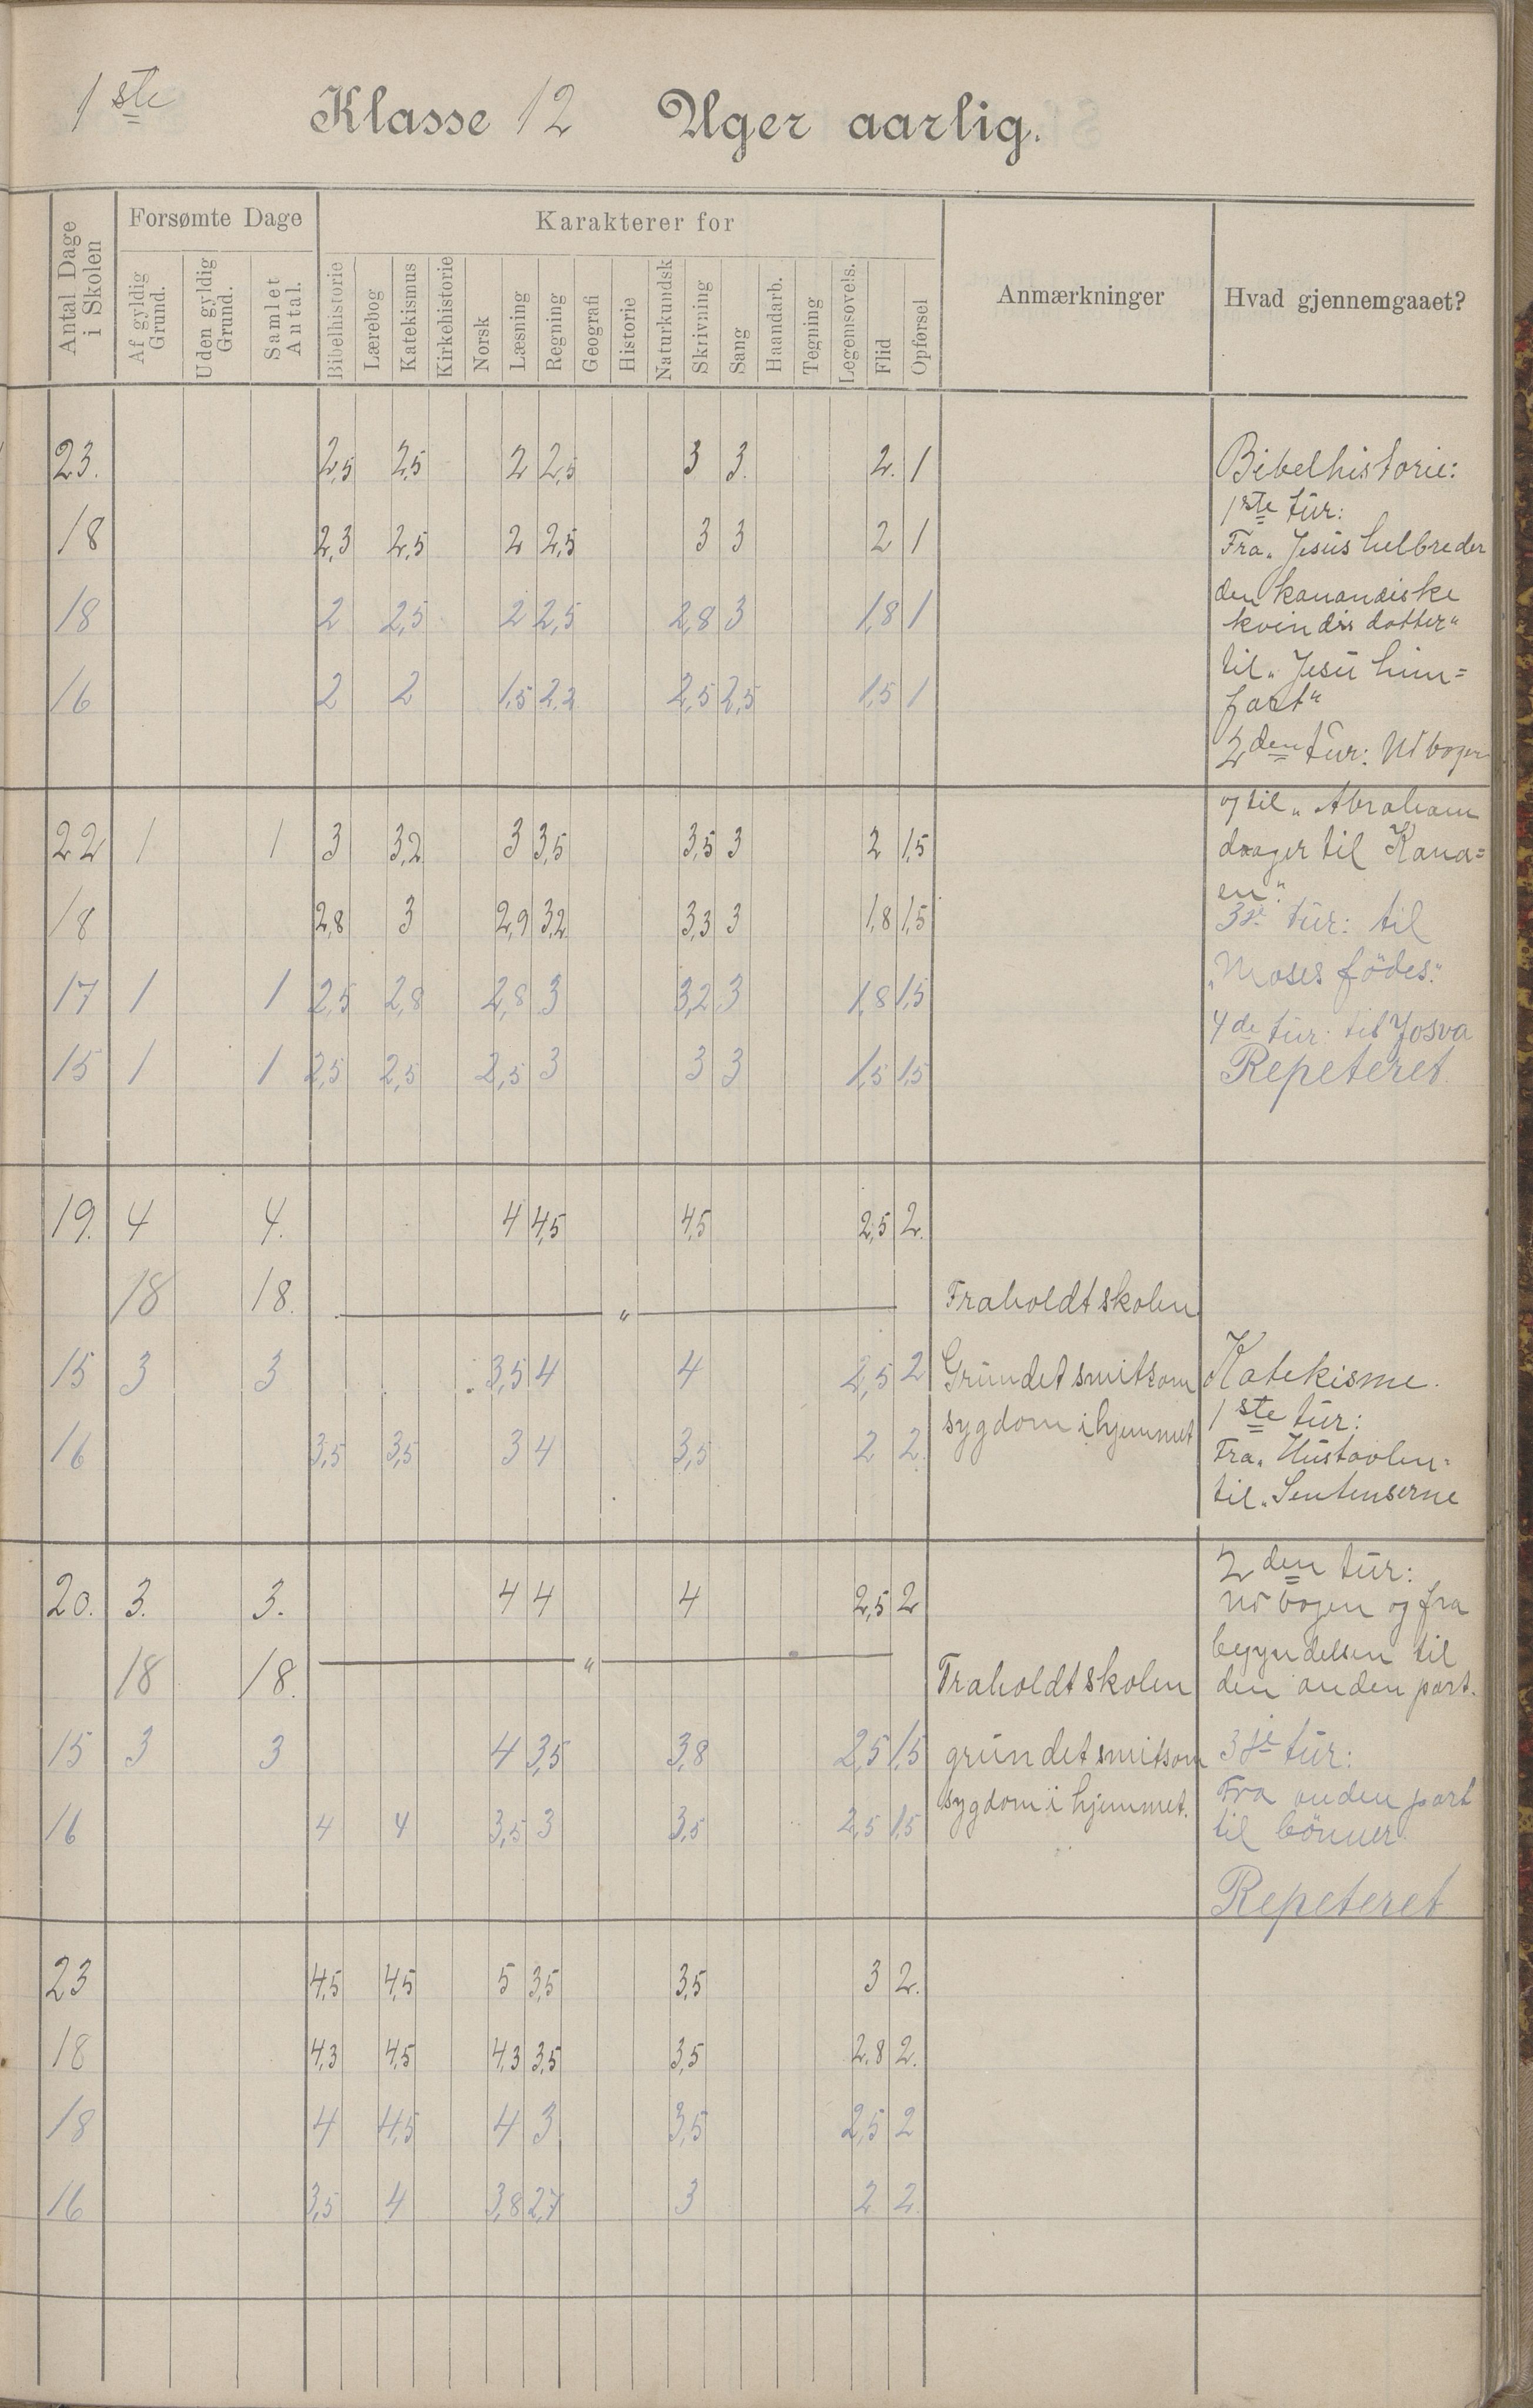 1ste Klasse 12 Uger aarlig.
Antal Dage i Skolen
Forsømte Dage
Karakterer for
Anmærkninger
Hvad gjennemgaaet?
Af gyldig Grund.
Uden gyldig Grund.
Samlet Antal.
Bibelhistorie
Lærebog
Katekismus
Kirkehistorie
Norsk
Læsning
Regning
Geografi
Historie
Naturkundsk
Skrivning
Sang
Haandarb.
Tegning
Legemsøvels.
Flid
Opførsel
23. 2,5 2,5 2 2,5 3 3. 2. 1 Bibelhistorie:
1ste tur:
18 2,3 2,5 2 2,5 3 3 2 1 Fra „Jesus helbreder
den kanandiske
18 2 2,5 2 2,5 2,8 3 1,8 1 kvindes datter“
til „Jesu him=
16 2 2 1,5 2,2 2,5 2,5 1,5 1 fart“
2den tur: Ud bogen
og til „Abraham
22 1 1 3 3,2 3 3,5 3,5 3 2 1,5 drager til Kana=
en“.
18 2,8 3 2,9 3,2 3,3 3 1,8 1,5 3de tur: til
17 1 1 2,5 2,8 2,8 3 3,2 3 1,8 1,5 „Moses födes“.
4de tur: til Josva
15 1 1 2,5 2,5 2,5 3 3 3 1,5 1,5 Repeteret.
19. 4 4. 4 4,5 4,5 2,5 2.
18 18. — „ — Fraholdt skolen
15 3 3 3,5 4 4 2,5 2 Grundet smitsom Katekisme.
sygdom i hjemmet 1ste tur:
16 3,5 3,5 3 4 3,5 2 2. Fra „Hustavlen“
til „Sentenserne
2den tur:
20. 3. 3. 4 4 4 2,5 2 ud bogen og fra
begyndelsen til
18 18. — „ — Fraholdt skolen den anden part.
15 3 3 4 3,5 3,8 2,5 1,5 grundet smitsom 3de tur:
sygdom i hjemmet. Fra anden part
16 4 4 3,5 3 3,5 2,5 1,5 til bönner.
Repeteret
23 4,5 4,5 5 3,5 3,5 3 2.
18 4,3 4,5 4,3 3,5 3,5 2,8 2.
18 4 4,5 4 3 3,5 2,5 2
16 3,5 4 3,8 2,7 3 2 2.